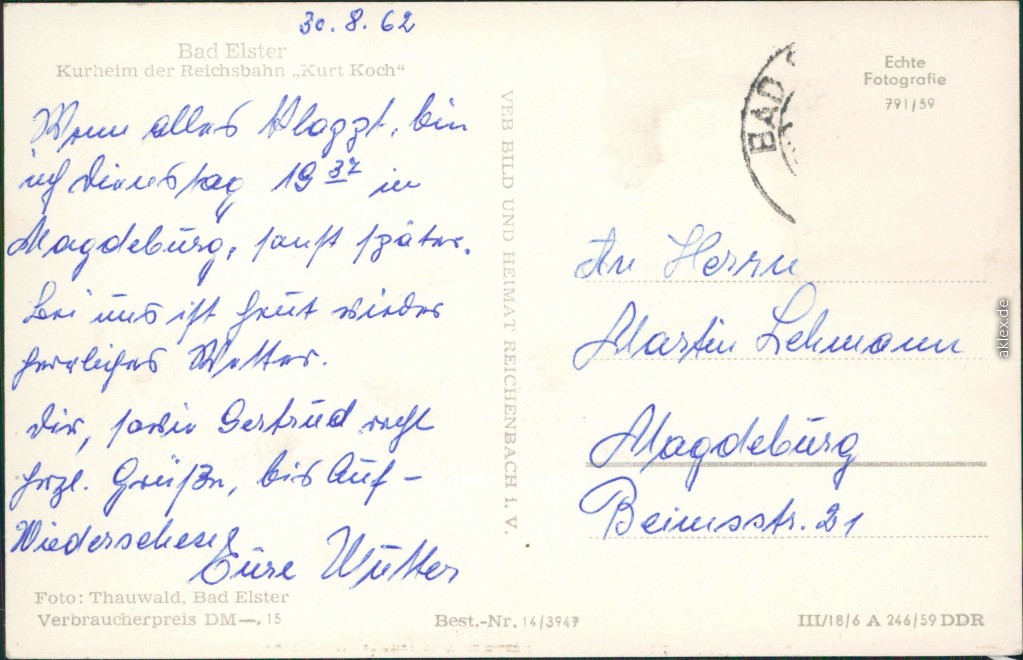 30.8.62
Bad Elster
Kurheim der Reichsbahn „Kurt Koch"
Wenn alles klappt, bin
ich Dienstag 19 37 in
Magdeburg, sonst später.
Bei uns ist heut wieder
herrliches Wetter.
Dir, sowie Gertrud recht
herzl. Grüße, bis Auf-
Wiedersehen
Eure Mutter
Foto: Thauwald, Bad Elster
Verbraucherpreis DM —.15
VEB BILD UND HEIMAT REICHENBACH i. V.
Best.-Nr. 14/3947
Echte
Fotografie
791/59
BAD
An Herrn
Martin Lehmann
Magdeburg
Beimsstr. 21
III/18/6 A 246/59 DDR
aklex.de